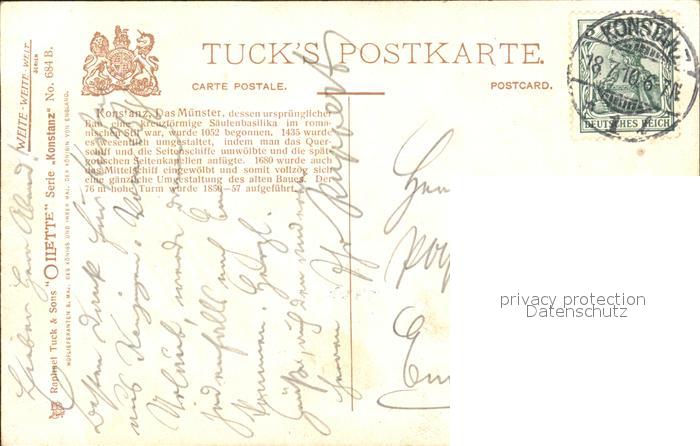 TUCK'S POSTKARTE.
CARTE POSTALE.
POSTCARD.
KONSTANZ
18. 10. 6-7N.
DEUTSCHES REICH
Konstanz, Das Münster, dessen ursprünglicher
Bau eine kreuzförmige Säulenbasilika im roma-
nischen Stil war, wurde 1052 begonnen. 1435 wurde
es wesentlich umgestaltet, indem man das Quer-
schiff und die Seitenschiffe umwölbte und die spät-
gotischen Seitenkapellen anfügte. 1680 wurde auch
das Mittelschiff eingewölbt und somit vollzog sich
eine gänzliche Umgestaltung des alten Baues. Der
76 m hohe Turm wurde 1850–57 aufgeführt.
"WEITE-WEITE-WELT"
SERIEN
Raphael Tuck & Sons "OILETTE" Serie "Konstanz" No. 684 B.
HOFLIEFERANTEN S. MAJ. DES KÖNIGS UND IHRER MAJ. DER KÖNIGIN VON ENGLAND.
Lieber Herr
Besten Dank für
aus
Urlaub, werde
jedenfalls nach
kommen. Herzl.
Grüße, auf den anderen
Herren Ihr
privacy protection
Datenschutz